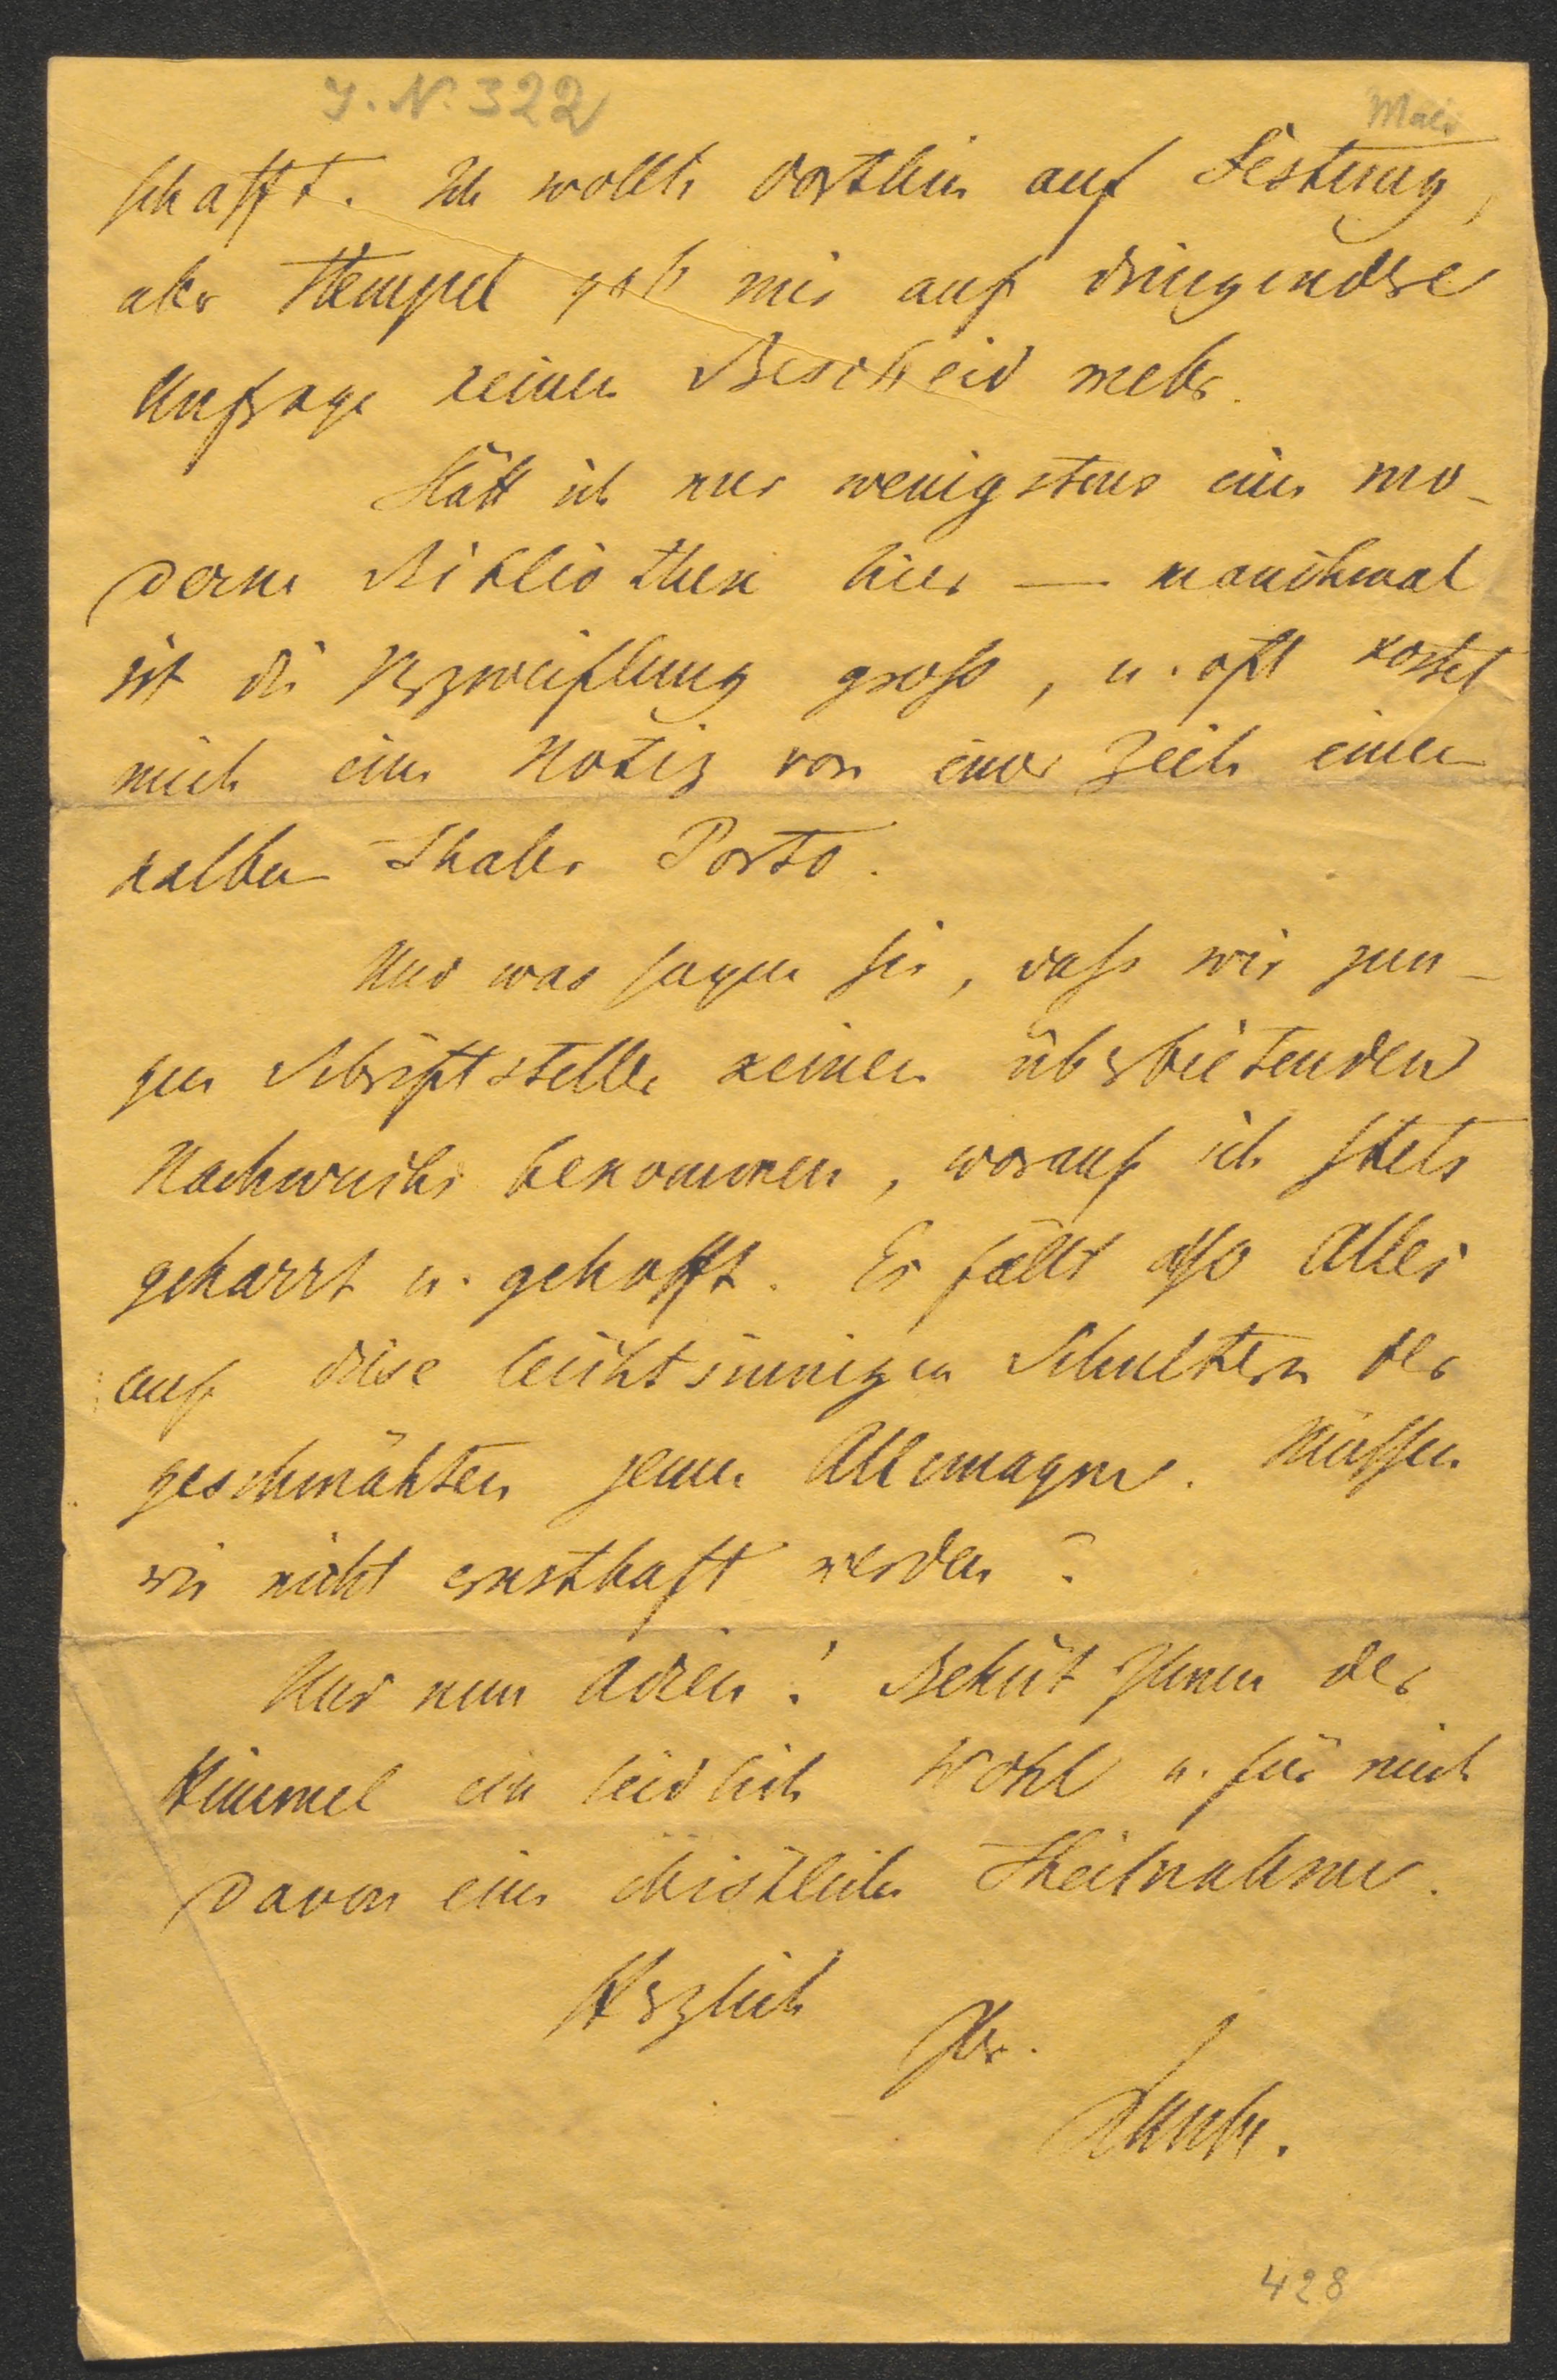 J. N. 322
schafft. Ich wollte dorthin auf Festung,
aber Hempel gab mir auf dringendste
Anfrage keinen Bescheid mehr.
Hätt ich nur wenigstens eine mo-
derne Bibliothek hier — manchmal
ist die Verzweiflung groß, u. oft kostet
mich eine Notiz von einer Zeile einen
halben Thaler Porto.
Und was sagen Sie, daß wir jun-
gen Schriftsteller keinen überbietenden
Nachwuchs bekommen, worauf ich stets
geharrt u. gehofft. Es fällt also Alles
auf diese leichtsinnigen Schultern der
geschmähten jeune Allemagne. Müssen
wir nicht ernsthaft werden?
Und nun Adieu! Behüt Ihnen der
Himmel ein leidlich Wohl u. für mich
davon eine christliche Theilnahme.
Herzlich
Ihr.
Laube.
428